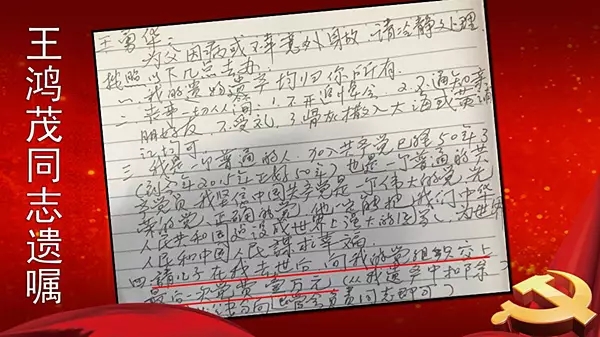 王鸿茂同志遗嘱
王勇华:
为父因病或不幸意外身故,请冷静处理,
按照以下几点去办
一、我的遗物遗产均归你所有.
二、丧事一切从简:1.不开追悼会 2.不通知亲
朋好友,不受礼,3.骨灰撒入大海或黄浦
江均可
三、我是一个普通的人,加入共产党已经50年了
(到今年2015年正好50年)也是一个普通的共
产党员,我坚信中国共产党是一个伟大的党,光
荣的党,正确的党,他一定能把我们中华
人民共和国建设成世界上强大的国家,为世界
人民和中国人民谋求幸福.
四.请儿子在我去世后,向我的党组织交上
最后一次党费壹万元(从我遗产中扣除)